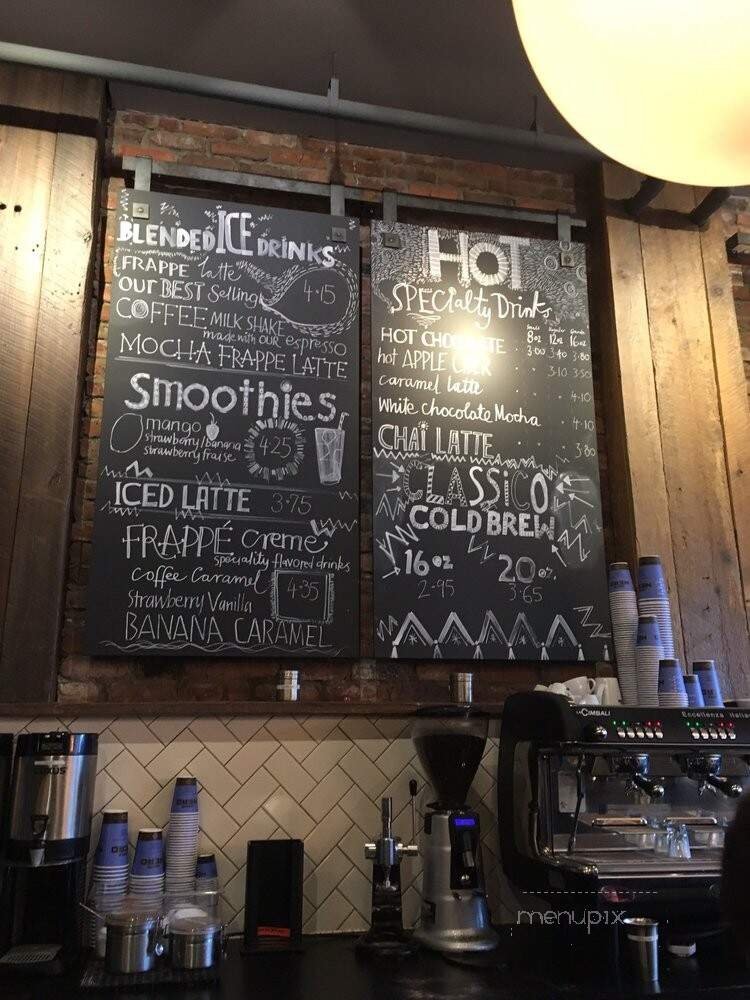 BLENDED ICE DRINKS
FRAPPE latte
OUR BEST Selling
4.15
COFFEE MILK SHAKE
made with OUR espresso
MOCHA FRAPPE LATTE
Smoothies
mango
strawberry/banana
strawberry fraise
4.25
ICED LATTE 3.75
FRAPPÉ creme
speciality flavored drinks
coffee Caramel
4.35
Strawberry Vanilla
BANANA CARAMEL
HOT
SPEcialty Drinks
8oz 12oz 16oz
HOT CHOCOLATE 3.00 3.40 3.80
hot APPLE 3.10 3.50
caramel latte 4.10
White chocolate Mocha 4.10
CHAi LATTE 3.80
CLASSICO
COLD BREW
16oz 20oz.
2.95 3.65
LACIMBALI
Eccellenza Italia
menupix